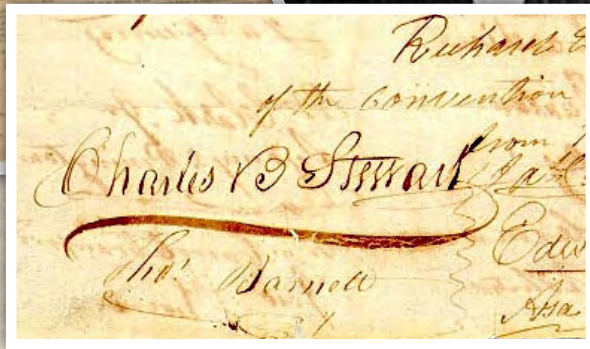 Richard
of the Convention
from
Charles B Stewart
Edw
Thos Barnett
Asa